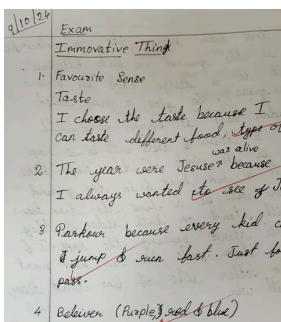 9/10/24
Exam
Immovative Thing
1. Favourite Sense
Taste
I choose the taste because I
can taste different food, type
was alive
2. The year were Jesuse because
I always wanted to see if
3 Parkour because every kid
I jump & run fast. Just
pass.
4 Beleiver (Purple, red & blue)